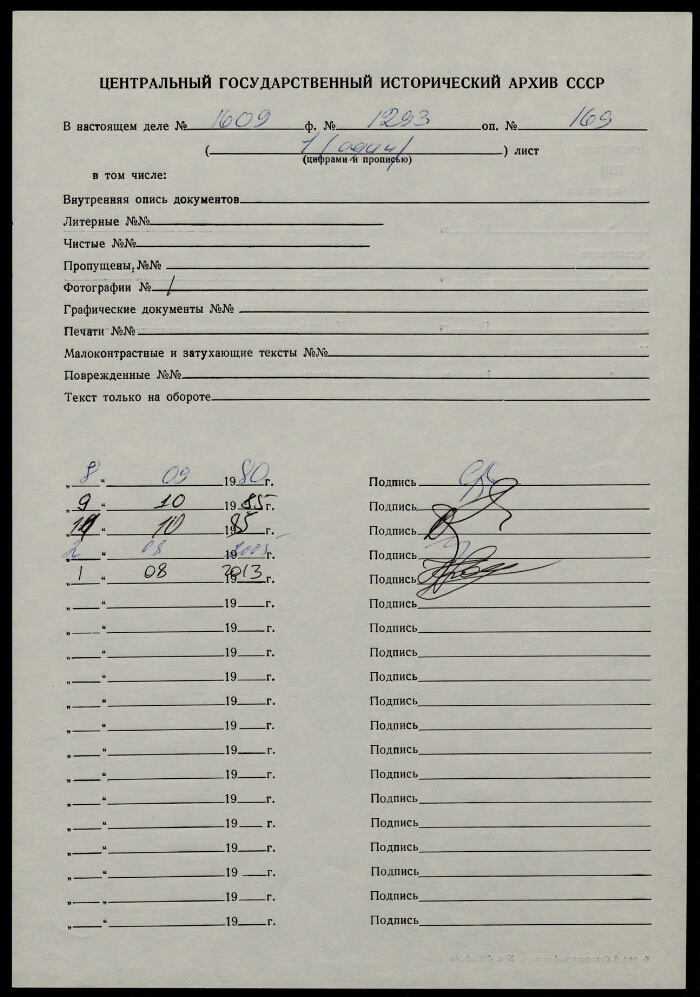 ЦЕНТРАЛЬНЫЙ ГОСУДАРСТВЕННЫЙ ИСТОРИЧЕСКИЙ АРХИВ СССР
В настоящем деле № 1609 ф. № 1293 оп. № 169
( 1 (один) ) лист
(цифрами и прописью)
в том числе:
Внутренняя опись документов
Литерные №№
Чистые №№
Пропущены, №№
Фотографии № 1
Графические документы №№
Печати №№
Малоконтрастные и затухающие тексты №№
Поврежденные №№
Текст только на обороте
„ 8 “ 09 1980 г. Подпись
„ 9 “ 10 1985 г. Подпись
„ “ 10 1985 г. Подпись
„ 2 “ 08 19 г. Подпись
„ 1 “ 08 2013 г. Подпись
„ “ 19 г. Подпись
„ “ 19 г. Подпись
„ “ 19 г. Подпись
„ “ 19 г. Подпись
„ “ 19 г. Подпись
„ “ 19 г. Подпись
„ “ 19 г. Подпись
„ “ 19 г. Подпись
„ “ 19 г. Подпись
„ “ 19 г. Подпись
„ “ 19 г. Подпись
„ “ 19 г. Подпись
„ “ 19 г. Подпись
„ “ 19 г. Подпись